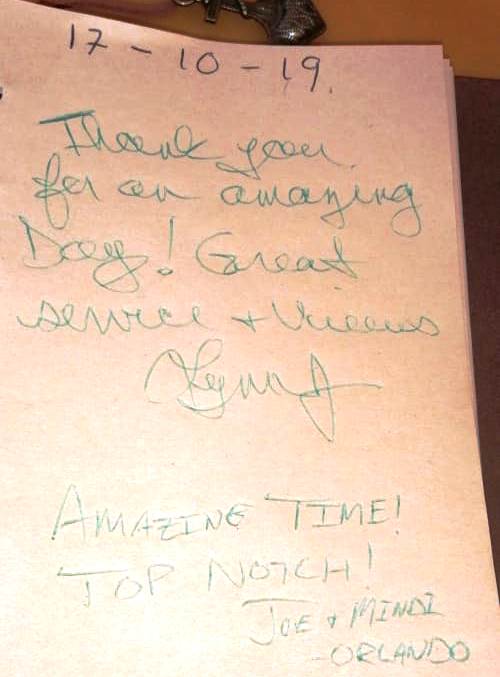 17-10-19.
Thank you
for an amazing
Day! Great
service + Views
Lynn
AMAZING TIME!
TOP NOTCH!
JOE + MINDI
-ORLANDO